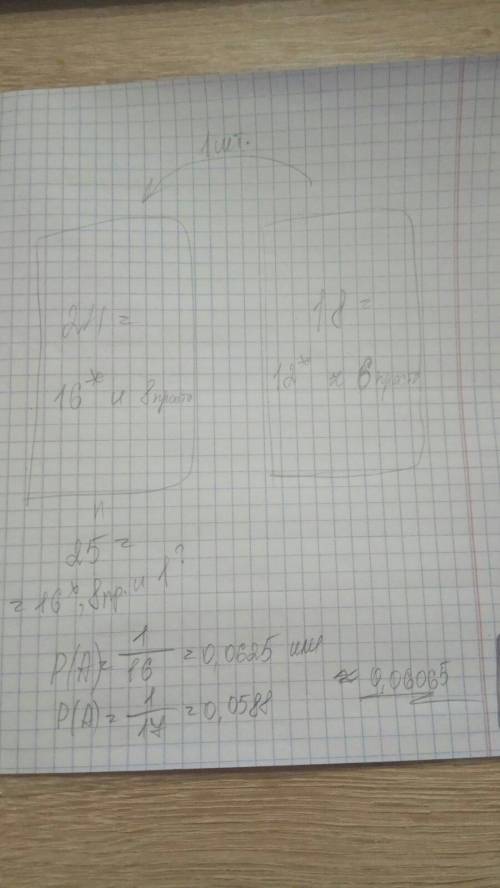 1 шт.
24 =
16* и 8 просто
18 =
12* и 6 просто
25 =
= 16*, 8 пр. и 1?
P(A) = 1/16 = 0,0625 или
P(A) = 1/17 = 0,0588
≈ 0,06065